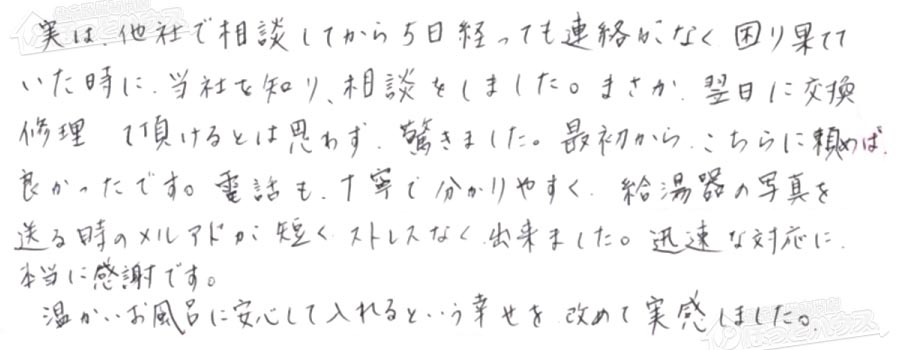 実は、他社で相談してから5日経っても連絡がなく困り果てて
いた時に、当社を知り、相談をしました。まさか、翌日に交換
修理 て頂けるとは思わず、驚きました。最初から、こちらに頼めば、
良かったです。電話も、丁寧で分かりやすく、給湯器の写真を
送る時のメルアドが短く、ストレスなく、出来ました。迅速な対応に、
本当に感謝です。
温かいお風呂に安心して入れるという幸せを、改めて実感しました。